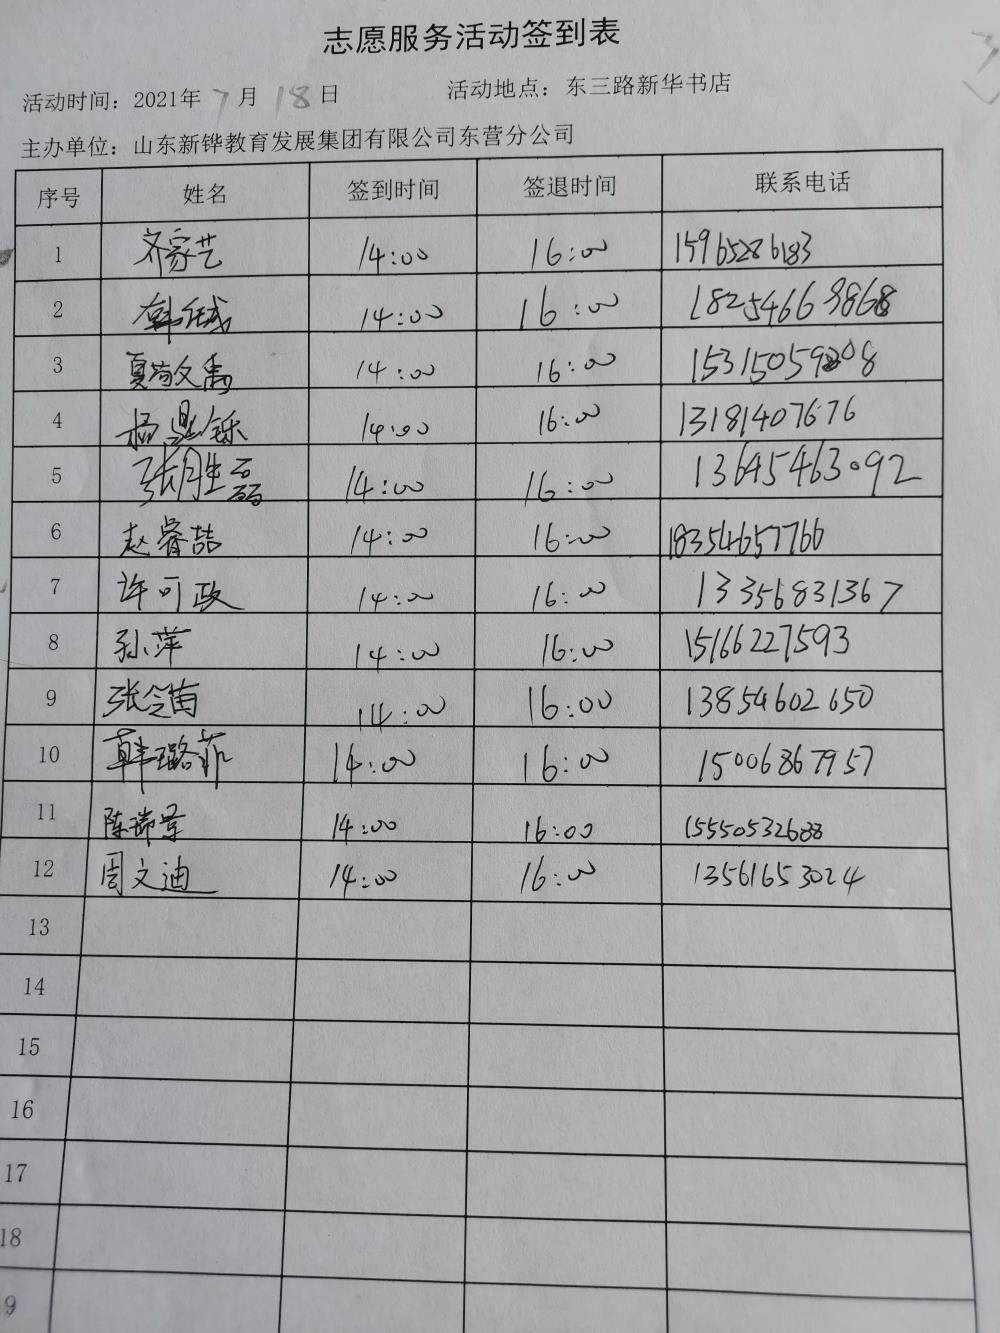 志愿服务活动签到表
活动时间：2021年 7 月 18 日 活动地点：东三路新华书店
主办单位：山东新铧教育发展集团有限公司东营分公司
序号 姓名 签到时间 签退时间 联系电话
1 齐家艺 14:00 16:00 15965286183
2 韩 14:00 16:00 18254663868
3 夏 文禹 14:00 16:00
4 杨 铄 14:00 16:00 13181407676
5 张胜磊 14:00 16:00 13645463092
6 赵睿喆 14:00 16:00 18354657766
7 许可政 14:00 16:00 13356831367
8 孙萍 14:00 16:00 15166227593
9 张笠苗 14:00 16:00 13854602650
10 韩璐菲 14:00 16:00 15006867957
11 陈瑞景 14:00 16:00
12 周文迪 14:00 16:00 13561653024
13
14
15
16
17
18
19